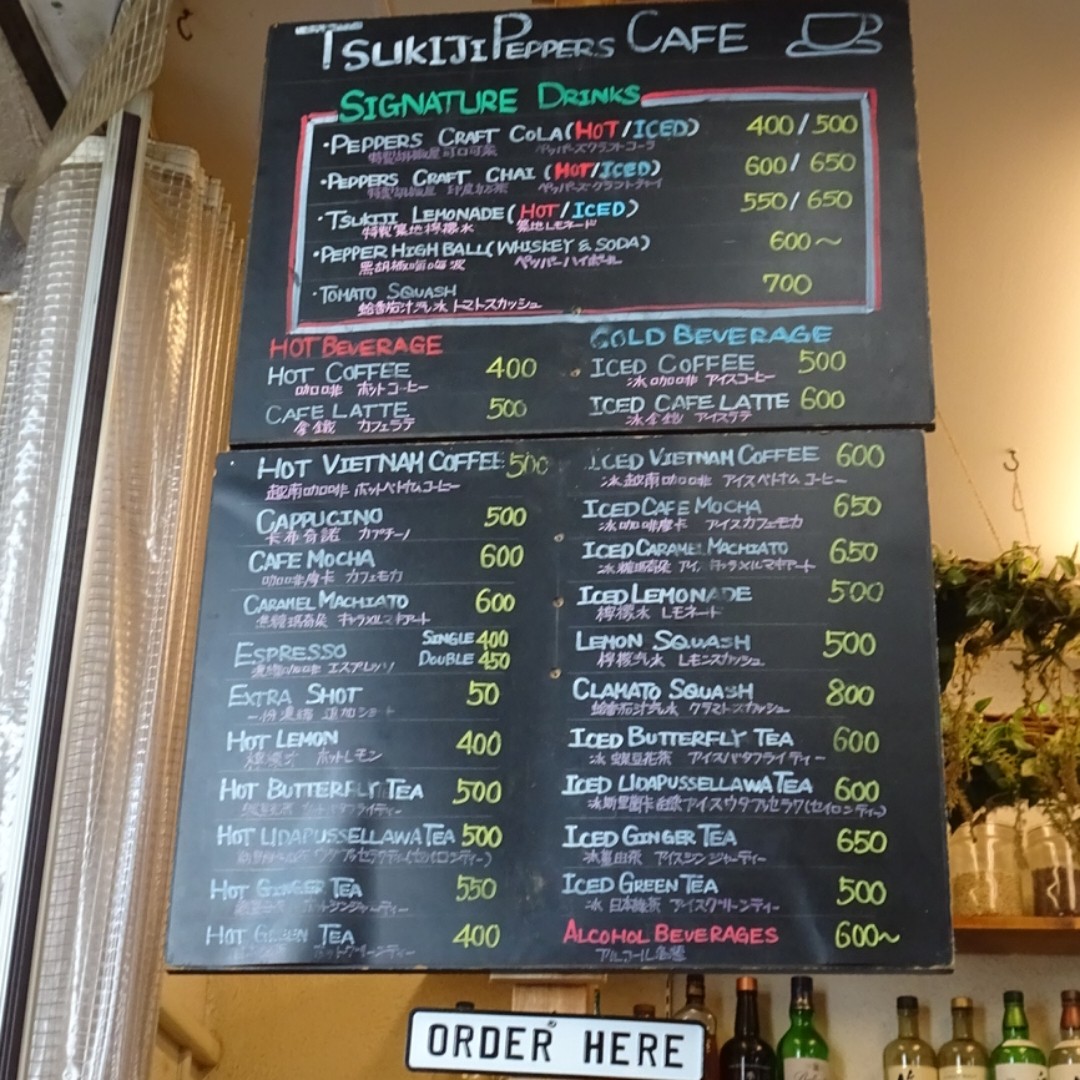 TSUKIJI PEPPERS CAFE
SIGNATURE DRINKS
・PEPPERS CRAFT COLA (HOT/ICED) 400/500
特製胡椒屋可口可楽 ペッパーズクラフトコーラ
・PEPPERS CRAFT CHAI (HOT/ICED) 600/650
特製胡椒屋 印度奶茶 ペッパーズクラフトチャイ
・TSUKIJI LEMONADE (HOT/ICED) 550/650
特製築地檸檬水 築地レモネード
・PEPPER HIGH BALL (WHISKEY & SODA) 600〜
黒胡椒嗨嗨波 ペッパーハイボール
・TOMATO SQUASH 700
蛤番茄汁汽水 トマトスカッシュ
HOT BEVERAGE
HOT COFFEE 400
咖啡 ホットコーヒー
CAFE LATTE 500
拿鐵 カフェラテ
COLD BEVERAGE
ICED COFFEE 500
冰咖啡 アイスコーヒー
ICED CAFE LATTE 600
冰拿鐵 アイスラテ
HOT VIETNAM COFFEE 500
越南咖啡 ホットベトナムコーヒー
CAPPUCINO 500
卡布奇諾 カプチーノ
CAFE MOCHA 600
咖啡摩卡 カフェモカ
CARAMEL MACHIATO 600
焦糖瑪奇朶 キャラメルマキアート
ESPRESSO SINGLE 400
DOUBLE 450
濃縮咖啡 エスプレッソ
EXTRA SHOT 50
一份濃縮 追加ショット
HOT LEMON 400
檸檬水 ホットレモン
HOT BUTTERFLY TEA 500
HOT UDAPUSSELLAWA TEA 500
HOT GINGER TEA 550
ホットジンジャーティー
HOT GREEN TEA 400
ホットグリーンティー
ICED VIETNAM COFFEE 600
冰越南咖啡 アイスベトナムコーヒー
ICED CAFE MOCHA 650
冰咖啡摩卡 アイスカフェモカ
ICED CARAMEL MACHIATO 650
冰焦糖瑪奇朶 アイ キャラメルマキアート
ICED LEMONADE 500
檸檬水 レモネード
LEMON SQUASH 500
檸檬汽水 レモンスカッシュ
CLAMATO SQUASH 800
蛤番茄汁汽水 クラマトスカッシュ
ICED BUTTERFLY TEA 600
冰蝶豆花茶 アイスバタフライティー
ICED UDAPUSSELLAWA TEA 600
アイスウダプセラワ(セイロンティー)
ICED GINGER TEA 650
アイスジンジャーティー
ICED GREEN TEA 500
冰日本緑茶 アイスグリーンティー
ALCOHOL BEVERAGES 600〜
アルコール各種
ORDER HERE